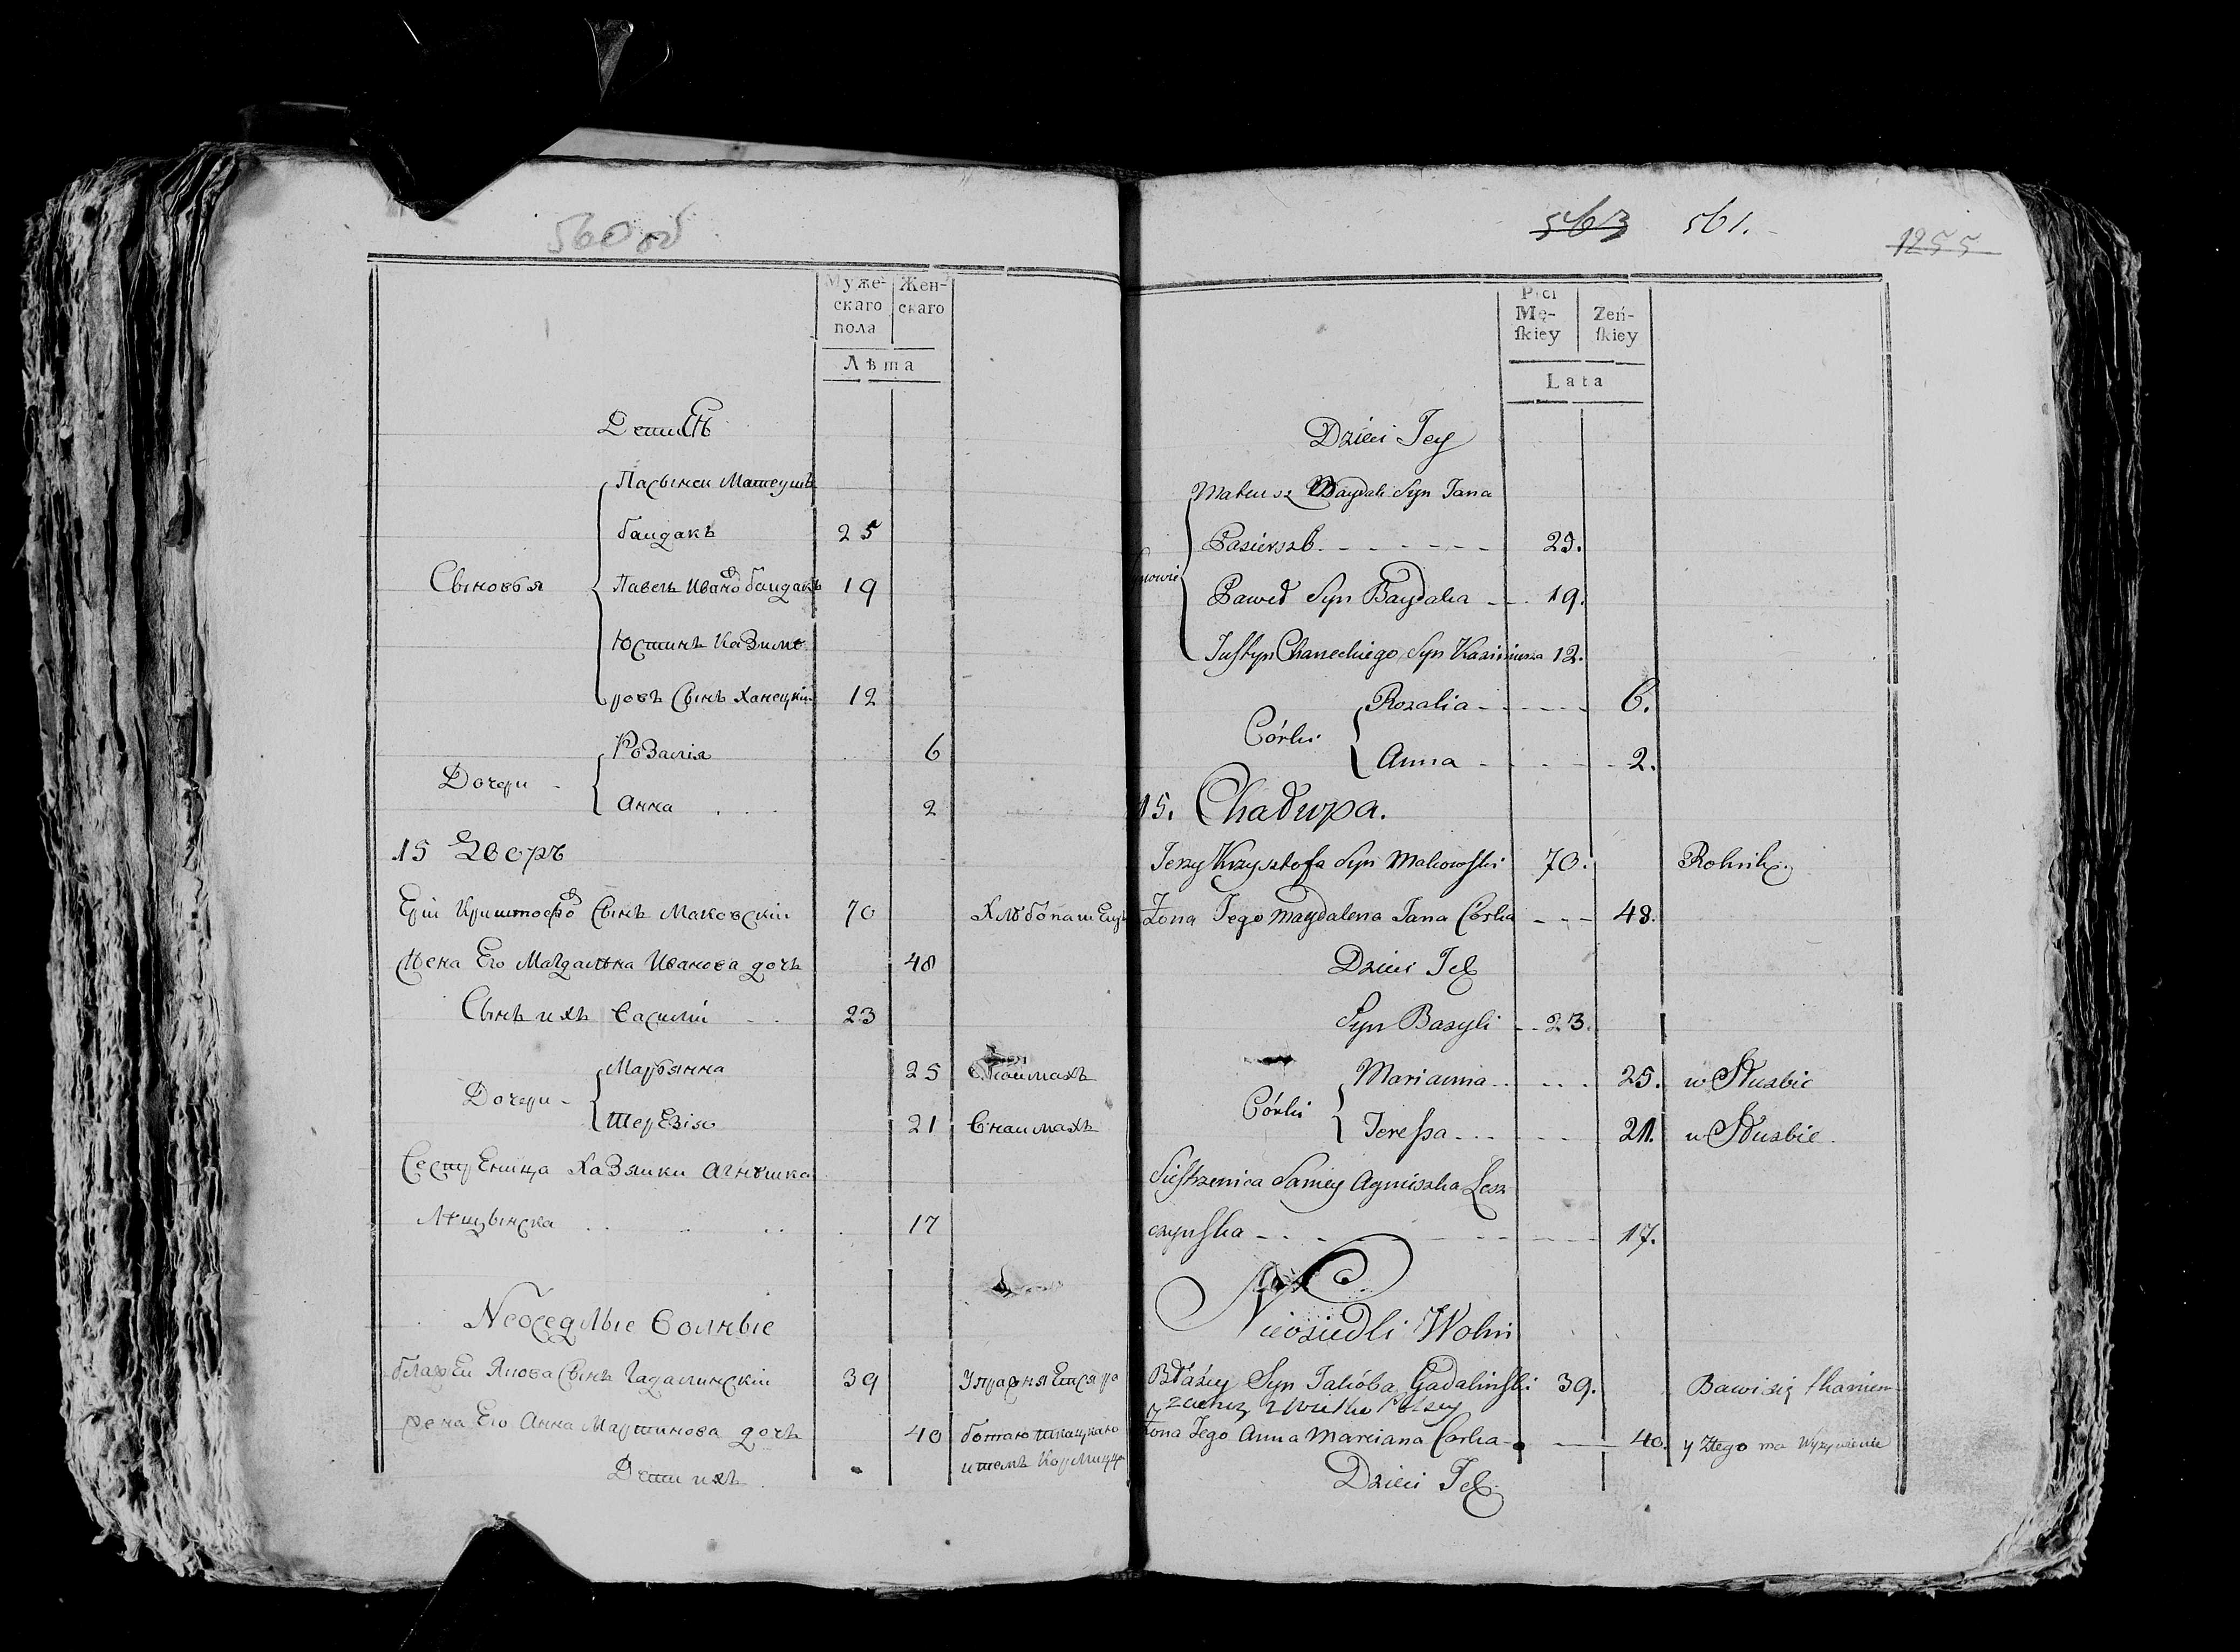 560 об
Муже-
скаго
пола
Жен-
скаго
Лѣта
Дети Еѣ
Пасынки Матеушъ
баидакъ 25
Сыновья Павелъ Ивано баидакъ 19
Юстинъ Казимѣ
ровъ Сынъ Ханецкіи 12
Розалія 6
Дочери
Анна 2
15 Дворъ
Ерій Криштофо Сынъ Маковскіи 70 Хлѣбопашецъ
Жена Его Магдальна Иванова дочь 48
Сынъ ихъ Василіи 23
Марьянна 25 Внаимахъ
Дочери
Терезія 21 Внаимахъ
Сестреница Хазяики Агнѣшка
Лѣщынска 17
Неоседлые Волные
блажеи Якова Сынъ Гадалинскіи 39 Упражняется ра
жена Его Анна Мартинова дочь 40 ботаю ткацкаю
Дети ихъ итемъ Кормицца
563 561.
1255
Płci
Mę-
ſkiey
Zeń-
ſkiey
Lata
Dzieci Jey
Mateusz Baydak Syn Jana
Pasierzb 25.
Synowie Paweł Syn Baydaka 19.
Juſtyn Chaneckiego Syn Kazimierza 12.
Rozalia 6.
Córki
Anna 2.
15. Chałupa.
Jerzy Krzysztofa Syn Makowſki 70. Rolnik.
Żona Jego Magdalena Jana Córka 48.
Dzieci Ich
Syn Bazyli 23.
Marianna 25. w Służbie
Córki
Tereſsa 21. w Służbie.
Sieſtrzenica Samey Agnieszka Lesz
czynſka 17.
Nieosiedli Wolni
Błażey Syn Jakóba Gadalinſki 39. Bawi się tkaniem
Żona Jego Anna Marciana Córka 40. y Ztego ma Wyżywienie
Dzieci Ich